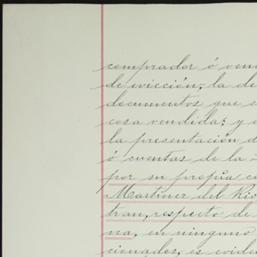 comprador ó ven
de evicción, la de
documentos que s
cosa vendida; y e
la presentación d
ó cuentas de la
por su propia c
Martinez del Rio
tran, respecto de
na, en ninguno
cionados, es evide